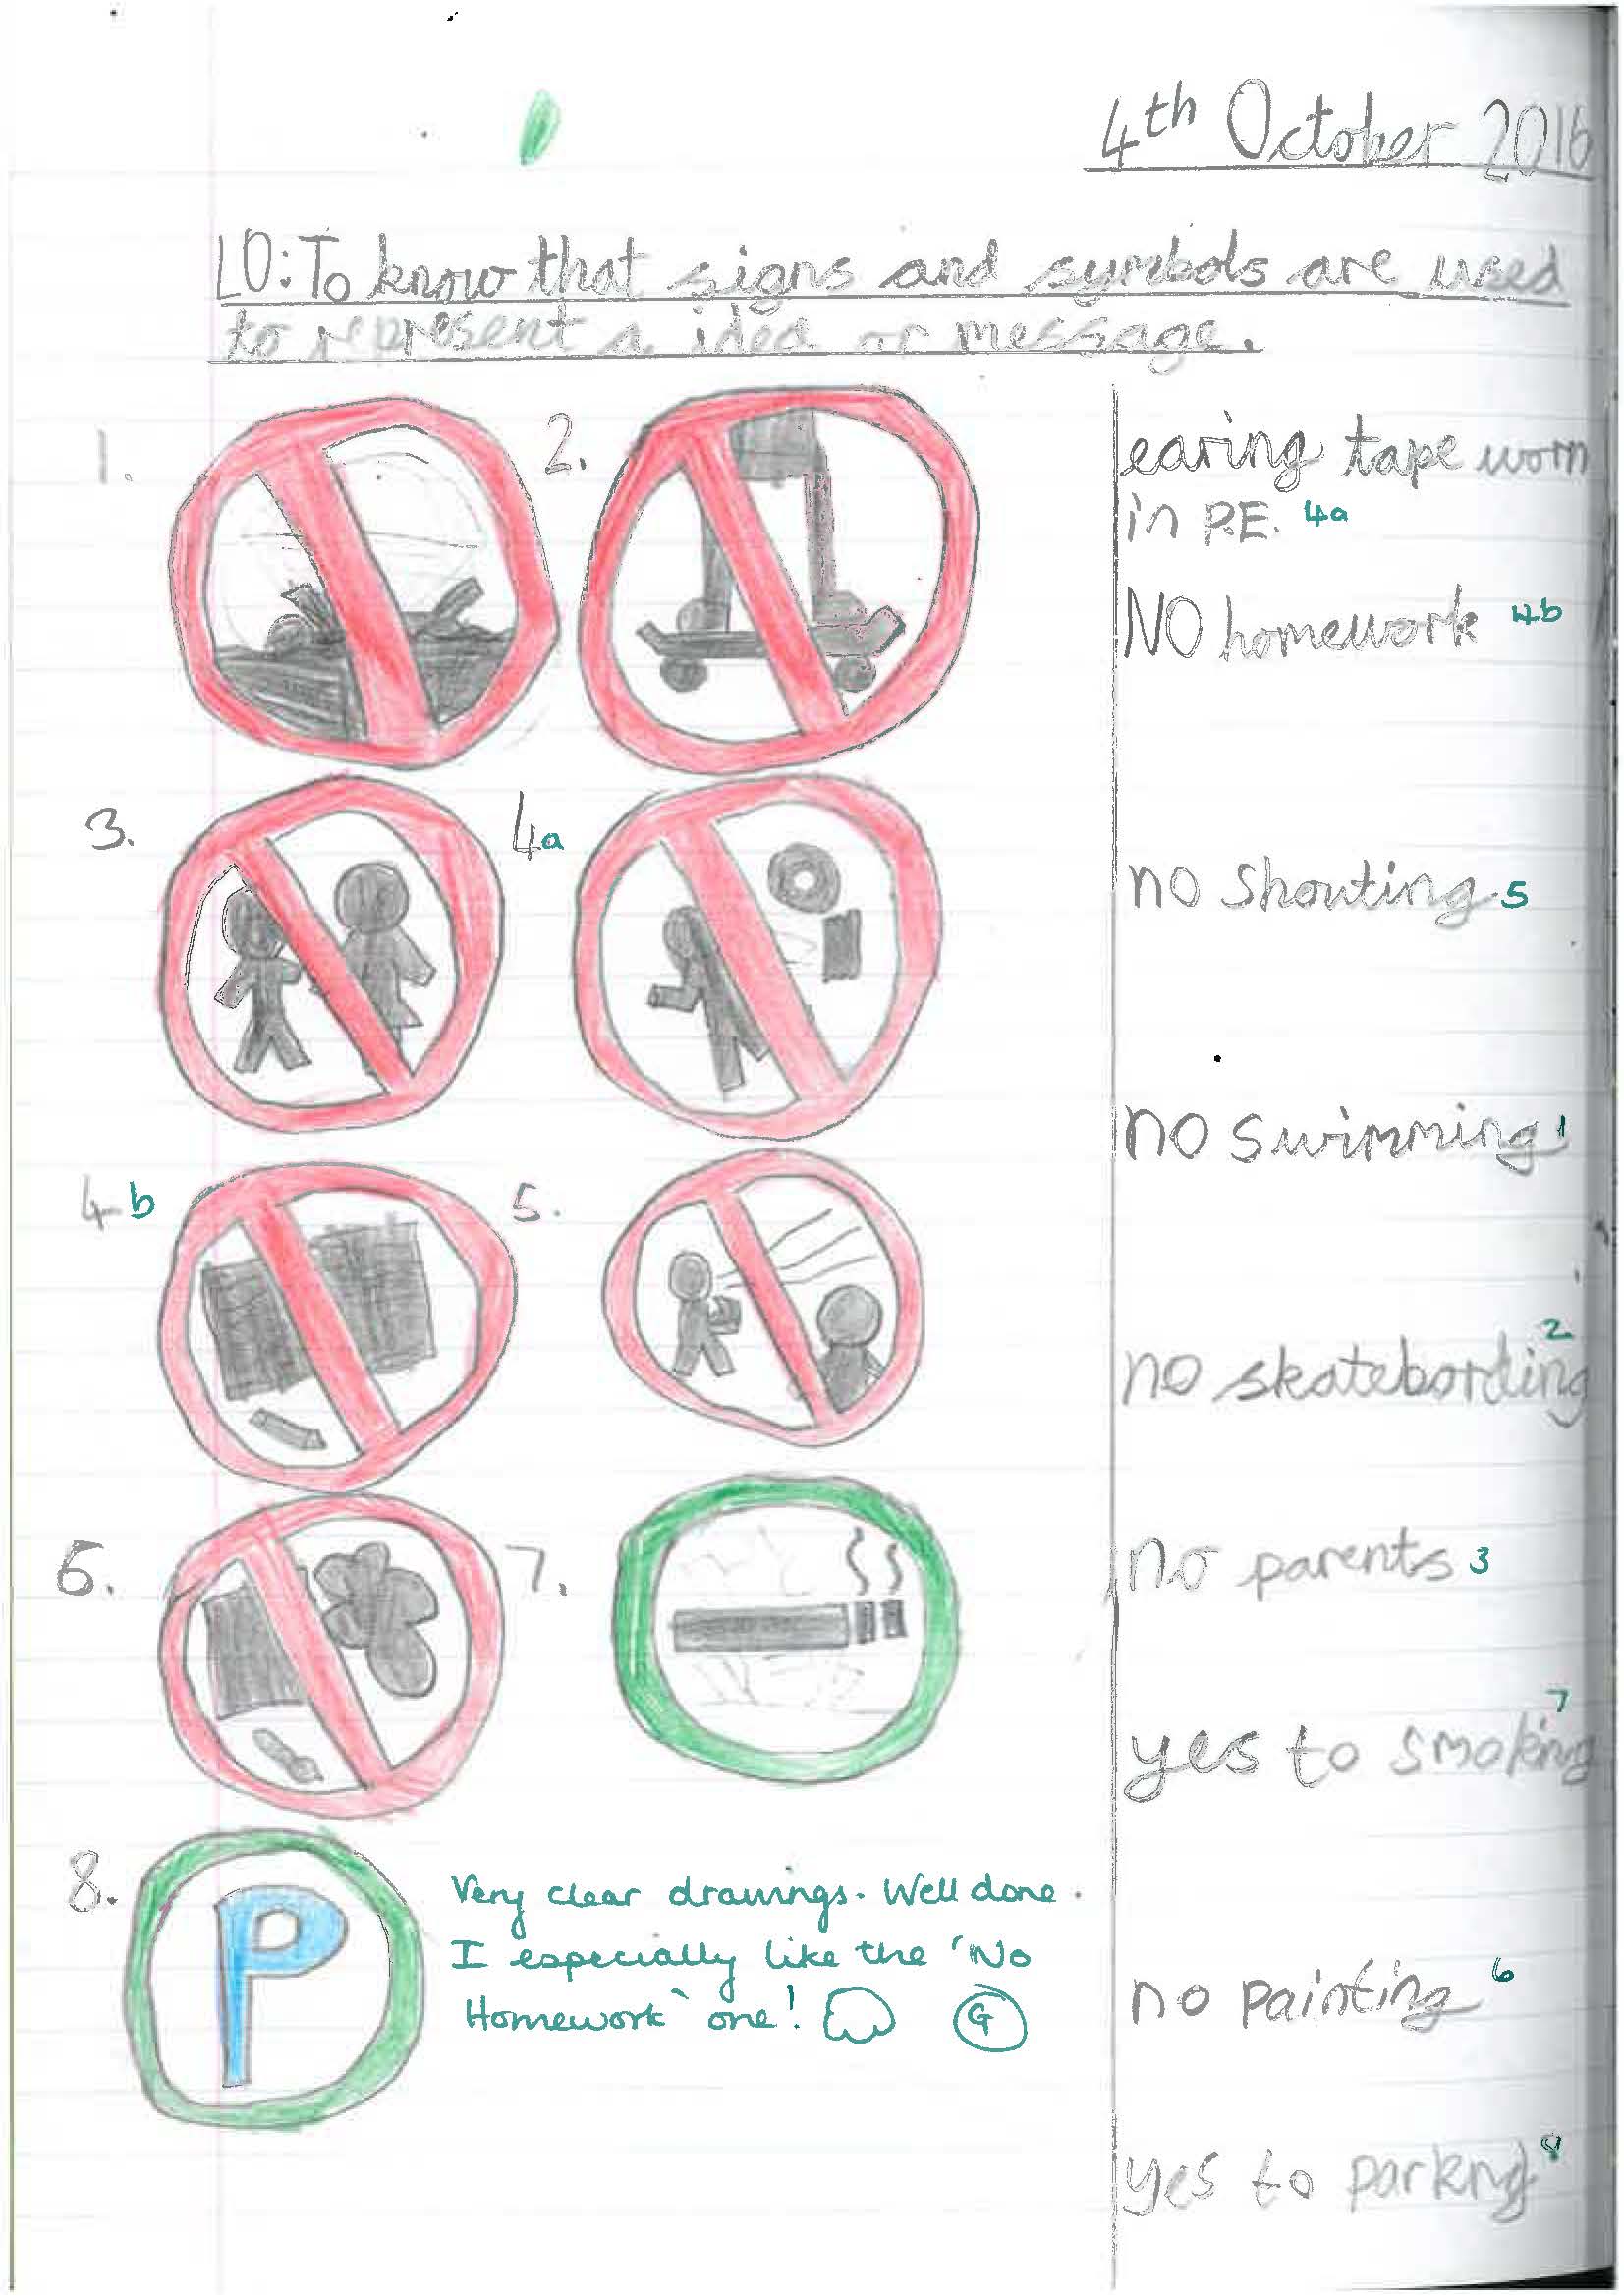 4th October 2016
LO: To know that signs and symbols are used
to represent a idea or message.
1.
2.
earing tape worn
in P.E. 4a
NO homework 4b
3.
4a
no shouting. 5
no swimming 1
4b
5.
no skatebording 2
6.
7.
no parents 3
yes to smoking 7
8.
P
Very clear drawings. Well done.
I especially like the 'No
Homework' one!
G
no painting 6
yes to parkng 8